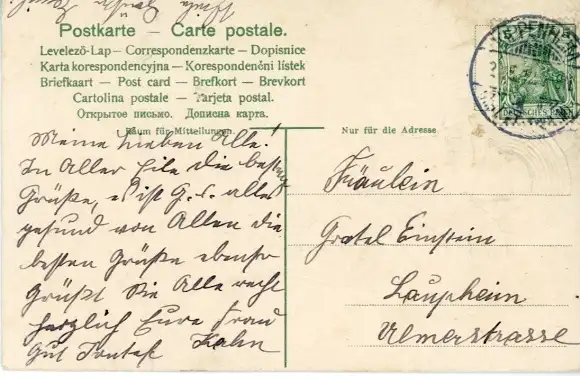 Postkarte — Carte postale.
Levelező-Lap — Correspondenzkarte — Dopisnice
Karta korespondencyjna — Korespondenční lístek
Briefkaart — Post card — Brefkort — Brevkort
Cartolina postale — Tarjeta postal.
Открытое письмо. Дописна карта.
Raum für Mitteilungen.
Meine Lieben Alle!
In Aller Eile die besten
Grüße, es ist G. s. alles
gesund von Allen die
besten Grüße ebenso
Grüßt Sie Alle recht
herzlich Eure Frau
Gut Kahn
Nur für die Adresse
Fräulein
Gretel Einstein
Laupheim
Ulmerstrasse